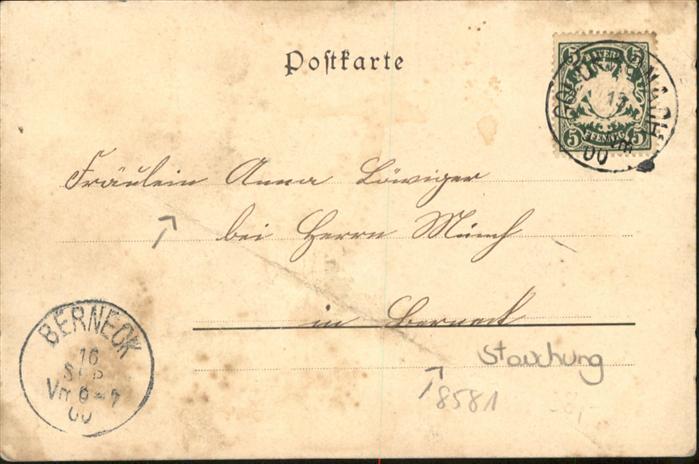 Postkarte
5 BAYERN 5
5 PFENNIG 5
13
00
Fräulein Anna
bei Herrn Münch
in Berneck
BERNECK
16
SEP
Vm 6-7
00
Stauchung
8581